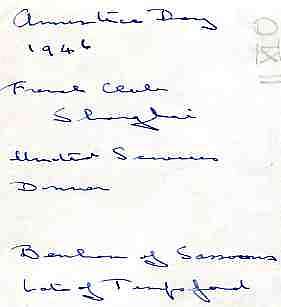 Armistice Day
1946
French Club
Shanghai
United Services
Dinner
Benham of Sassoons
late of Tempsford